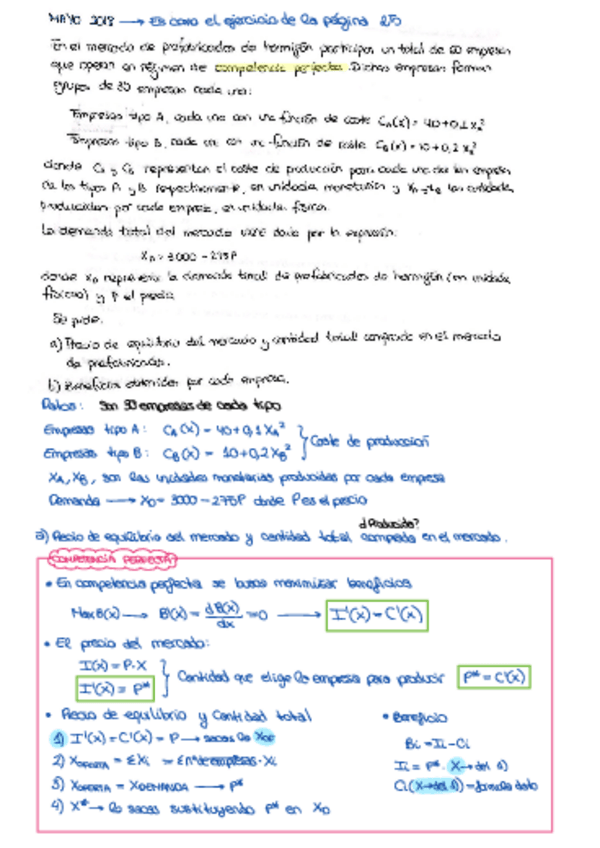 MAYO 2018 → Es como el ejercicio de la página 25
En el mercado de prefabricados de hormigón participan un total de 60 empresas
que operan en régimen de competencia perfecta. Dichas empresas forman
grupos de 30 empresas cada una:
Empresas tipo A, cada una con una función de coste CA(x) = 40+0,1XA²
Empresas tipo B, cada una con una función de coste CB(x) = 10+0,2XB²
donde CA y CB representan el coste de producción para cada una de las empresas
de los tipos A y B respectivamente, en unidades monetarias y XA, XB las cantidades
producidas por cada empresa, en unidades físicas.
La demanda total del mercado viene dada por la expresión:
XD = 3000 - 275P
donde XD representa la demanda total de prefabricados de hormigón (en unidades
físicas) y P el precio
Se pide:
a) Precio de equilibrio del mercado y cantidad total comprada en el mercado
de prefabricados.
b) Beneficios obtenidos por cada empresa.
Datos: Son 30 empresas de cada tipo
Empresas tipo A: CA(x) = 40+0,1XA²
Empresas tipo B: CB(x) = 10+0,2XB² } Coste de producción
XA, XB, son las unidades monetarias producidas por cada empresa
Demanda → XD = 3000 - 275P donde P es el precio
¿Producida?
a) Precio de equilibrio del mercado y cantidad total comprada en el mercado.
COMPETENCIA PERFECTA
• En competencia perfecta se busca maximizar beneficios
Max B(x) → B'(x) = dB(x)/dx = 0 → I'(x) = C'(x)
• El precio del mercado:
I(x) = P·X
I'(x) = P* } Cantidad que elige la empresa para producir P* = C'(x)
• Precio de equilibrio y Cantidad total
1) I'(x) = C'(x) = P → sacas la
2) XOFERTA = ΣXi = Σnº de empresas·Xi
3) XOFERTA = XDEMANDA → P*
4) X* → lo sacas sustituyendo P* en XD
• Beneficio
Bi = Ii - Ci
Ii = P*· X → del 1)
Ci (X → del 1) = fórmula dato